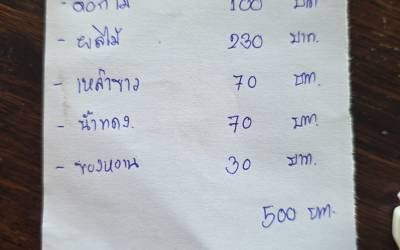 - ดอกไม้ 100 บาท
- ผลไม้ 230 บาท.
- เหล้าขาว 70 บาท.
- น้ำแดง. 70 บาท.
- ของหวาน 30 บาท.
500 บาท.